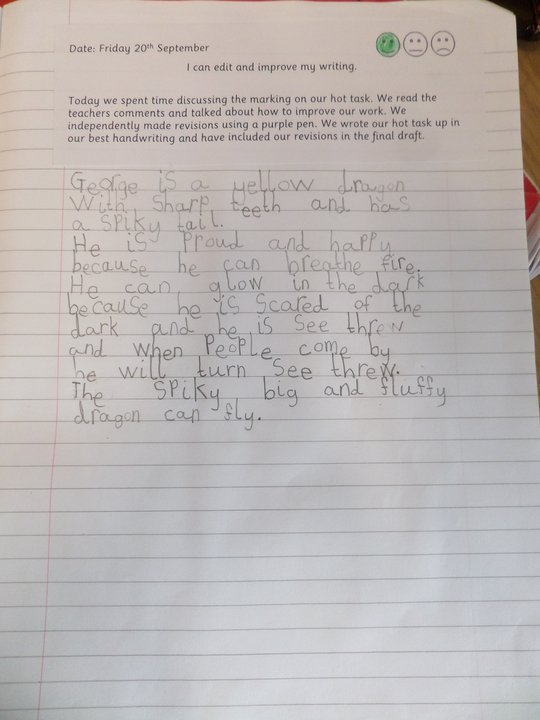 Date: Friday 20th September
I can edit and improve my writing.
Today we spent time discussing the marking on our hot task. We read the
teachers comments and talked about how to improve our work. We
independently made revisions using a purple pen. We wrote our hot task up in
our best handwriting and have included our revisions in the final draft.
George is a yellow dragon
With Sharp teeth and has
a Spiky tail.
He is Proud and happy
because he can breathe fire.
He can glow in the dark
because he is Scared of the
dark and he is See threw
and when PeoPLe come by
he will turn See threw.
The SPiky big and fluffy
dragon can fly.